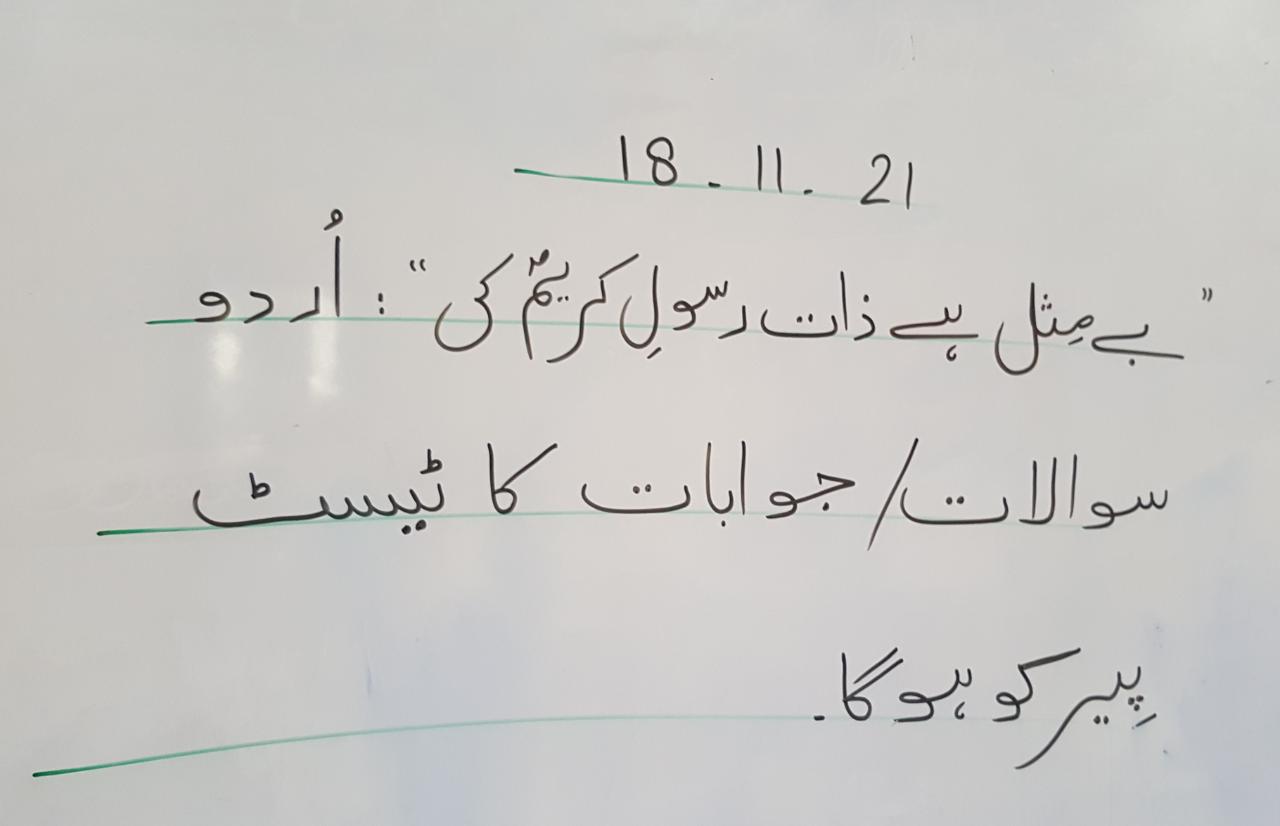 18 . 11 . 21
"بے مِثل ہے ذات رسولِ کریمؐ کی" : اُردو
سوالات/جوابات کا ٹیسٹ
پِیر کو ہوگا.